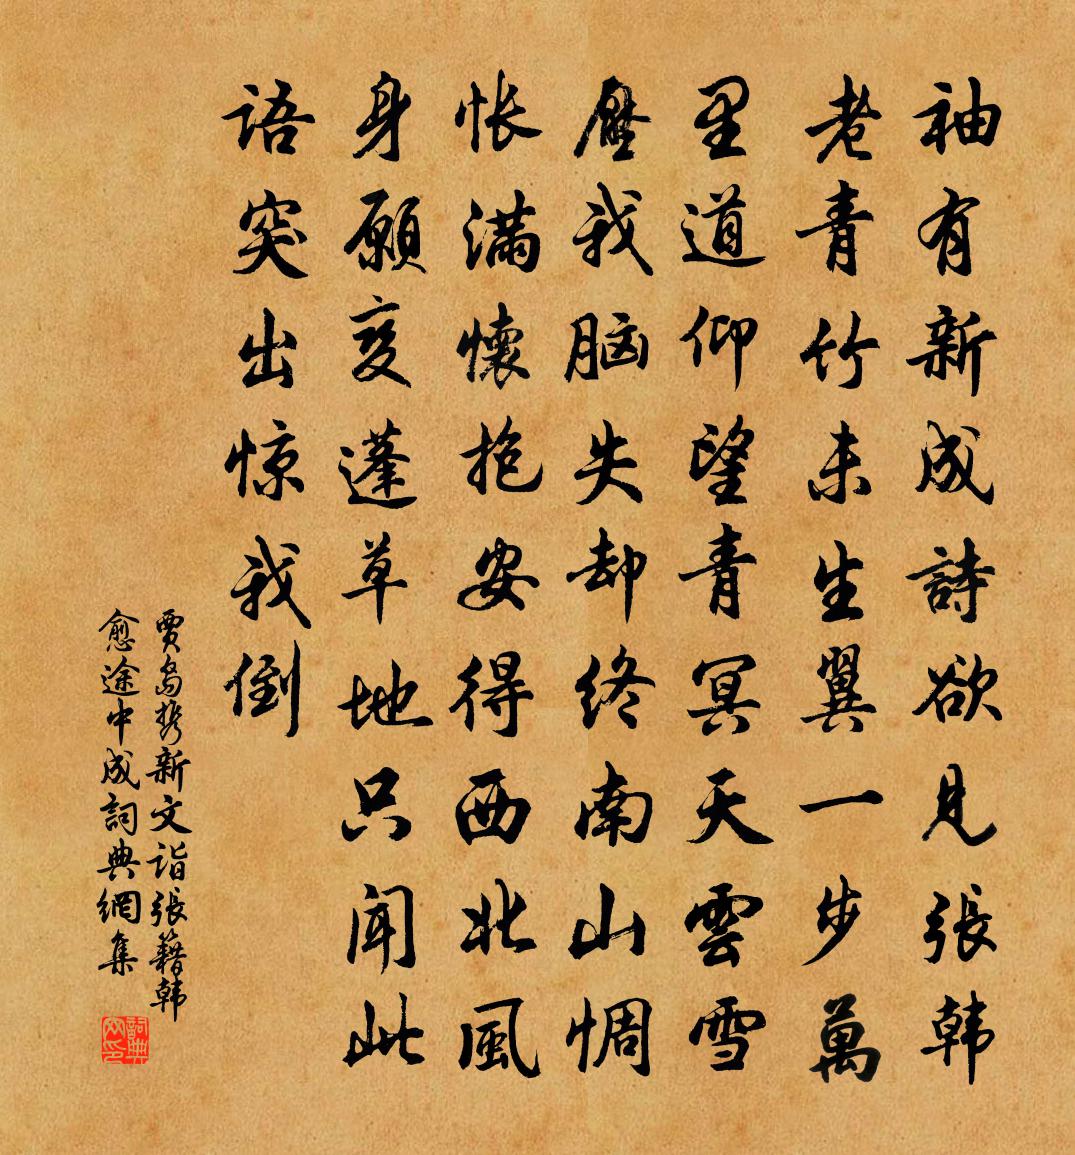 袖有新成詩欲見張韩
老青竹未生翼一步萬
里道仰望青冥天雲雪
壓我脑失却终南山惆
怅满懷抱安得西北風
身願变蓬草地只闻此
语突出惊我倒
贾岛携新文诣張籍韩
愈途中成詞典網集
詞典網印